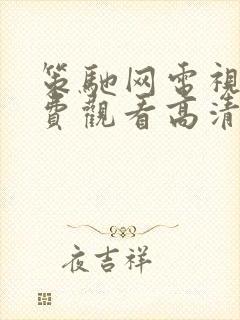 策馳网电視
費觀看高清
夜吉祥